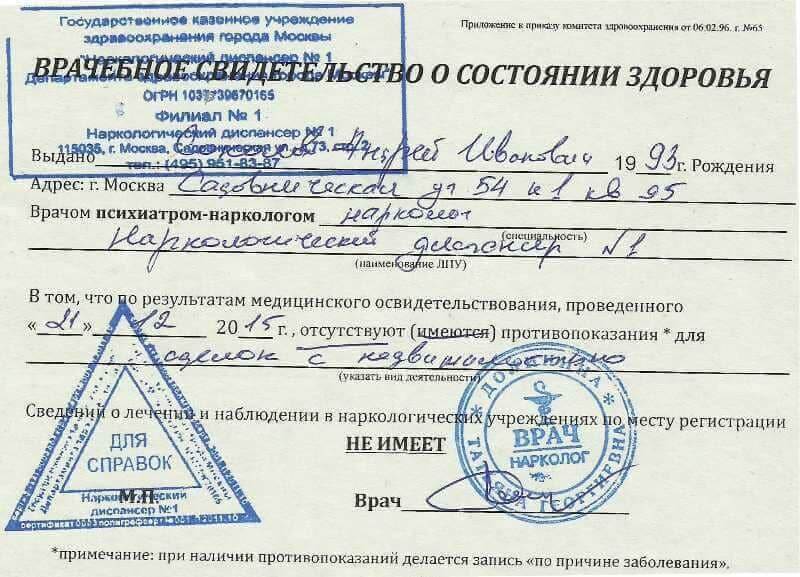 Государственное казенное учреждение
здравоохранения города Москвы
"Наркологический диспансер № 1
Департамента здравоохранения города Москвы"
ОГРН 1037739670165
Филиал № 1
Наркологический диспансер № 1
115035, г. Москва, Садовническая ул., д.73, стр.2
тел.: (495) 951-83-87
Приложение к приказу комитета здравоохранения от 06.02.96. г. №65
ВРАЧЕБНОЕ СВИДЕТЕЛЬСТВО О СОСТОЯНИИ ЗДОРОВЬЯ
Выдано Андрей Иванович 1993г. Рождения
Адрес: г. Москва Садовническая ул 54 к1 кв 95
Врачом психиатром-наркологом нарколог
(специальность)
Наркологический диспансер N1
(наименование ЛПУ)
В том, что по результатам медицинского освидетельствования, проведенного
«21» 12 2015г., отсутствуют (имеются) противопоказания * для
сделок с недвижимостью
(указать вид деятельности)
Сведений о лечении и наблюдении в наркологических учреждениях по месту регистрации
НЕ ИМЕЕТ
М.П.
Врач
ДЛЯ
СПРАВОК
Наркологический
диспансер №1
ВРАЧ
НАРКОЛОГ
ТАТЬЯНА ГЕОРГИЕВНА
*примечание: при наличии противопоказаний делается запись «по причине заболевания».